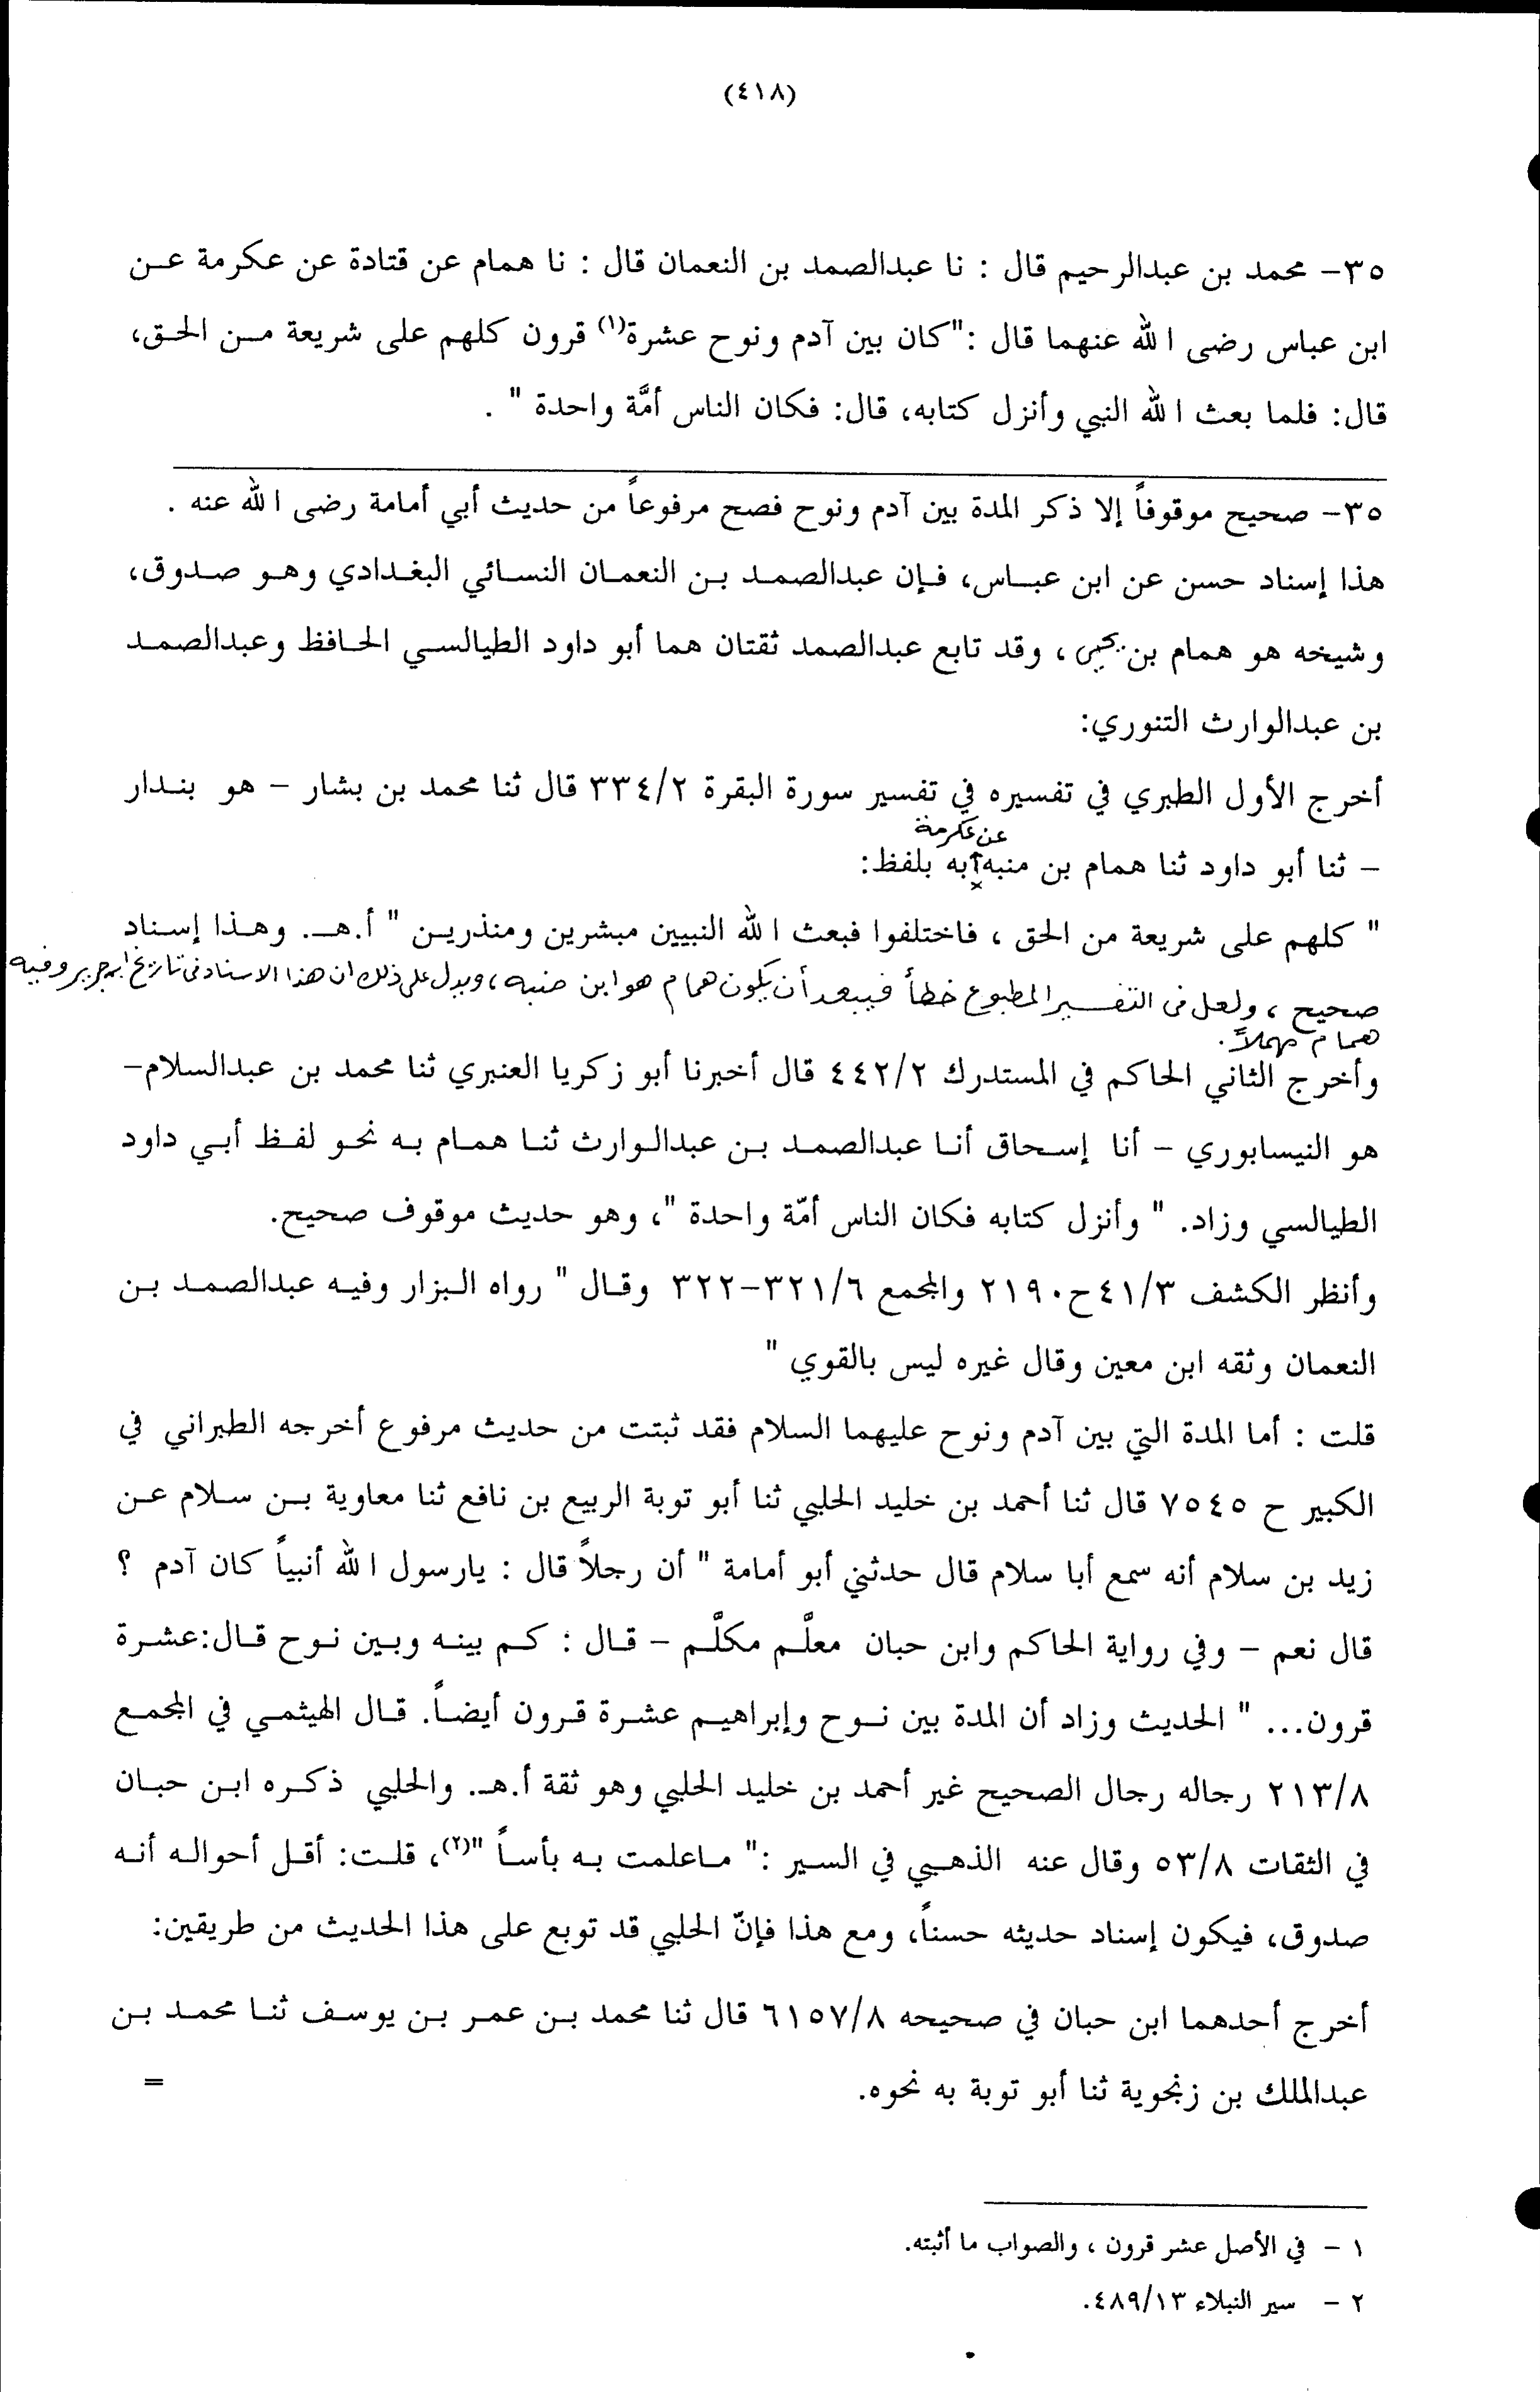 (٤١٨)
٣٥- محمد بن عبدالرحيم قال : نا عبدالصمد بن النعمان قال : نا همام عن قتادة عن عكرمة عن
ابن عباس رضى الله عنهما قال :"كان بين آدم ونوح عشرة(١) قرون كلهم على شريعة من الحق،
قال: فلما بعث الله النبي وأنزل كتابه، قال: فكان الناس أمَّة واحدة " .
٣٥- صحيح موقوفاً إلا ذكر المدة بين آدم ونوح فصح مرفوعاً من حديث أبي أمامة رضى الله عنه .
هذا إسناد حسن عن ابن عباس، فإن عبدالصمد بن النعمان النسائي البغدادي وهو صدوق،
وشيخه هو همام بن يحيى ، وقد تابع عبدالصمد ثقتان هما أبو داود الطيالسي الحافظ وعبدالصمد
بن عبدالوارث التنوري:
أخرج الأول الطبري في تفسيره في تفسير سورة البقرة ٣٣٤/٢ قال ثنا محمد بن بشار - هو بندار
عن عكرمة
- ثنا أبو داود ثنا همام بن منبه به بلفظ:
" كلهم على شريعة من الحق ، فاختلفوا فبعث الله النبيين مبشرين ومنذرين " أ.هـ. وهذا إسناد
صحيح ، ولعل فى التفسير المطبوع خطأ فيبعد أن يكون همام هو ابن منبه ، ويدل على ذلك ان هذا الاسناد فى تاريخ ابن جرير وفيه
همام مهملاً .
وأخرج الثاني الحاكم في المستدرك ٤٤٢/٢ قال أخبرنا أبو زكريا العنبري ثنا محمد بن عبدالسلام-
هو النيسابوري - أنا إسحاق أنا عبدالصمد بن عبدالوارث ثنا همام به نحو لفظ أبي داود
الطيالسي وزاد. " وأنزل كتابه فكان الناس أمّة واحدة "، وهو حديث موقوف صحيح.
وأنظر الكشف ٤١/٣ح٢١٩٠ والمجمع ٣٢١/٦-٣٢٢ وقال " رواه البزار وفيه عبدالصمد بن
النعمان وثقه ابن معين وقال غيره ليس بالقوي "
قلت : أما المدة التي بين آدم ونوح عليهما السلام فقد ثبتت من حديث مرفوع أخرجه الطبراني في
الكبير ح ٧٥٤٥ قال ثنا أحمد بن خليد الحلبي ثنا أبو توبة الربيع بن نافع ثنا معاوية بن سلام عن
زيد بن سلام أنه سمع أبا سلام قال حدثني أبو أمامة " أن رجلاً قال : يارسول الله أنبياً كان آدم ؟
قال نعم - وفي رواية الحاكم وابن حبان معلَّم مكلَّم - قال : كم بينه وبين نوح قال:عشرة
قرون... " الحديث وزاد أن المدة بين نوح وإبراهيم عشرة قرون أيضاً. قال الهيثمي في المجمع
٢١٣/٨ رجاله رجال الصحيح غير أحمد بن خليد الحلبي وهو ثقة أ.هـ. والحلبي ذكره ابن حبان
في الثقات ٥٣/٨ وقال عنه الذهبي في السير :" ماعلمت به بأساً "(٢)، قلت: أقل أحواله أنه
صدوق، فيكون إسناد حديثه حسناً، ومع هذا فإنّ الحلبي قد توبع على هذا الحديث من طريقين:
أخرج أحدهما ابن حبان في صحيحه ٦١٥٧/٨ قال ثنا محمد بن عمر بن يوسف ثنا محمد بن
عبدالملك بن زنجوية ثنا أبو توبة به نحوه. =
١ - في الأصل عشر قرون ، والصواب ما أثبته.
٢ - سير النبلاء ٤٨٩/١٣.